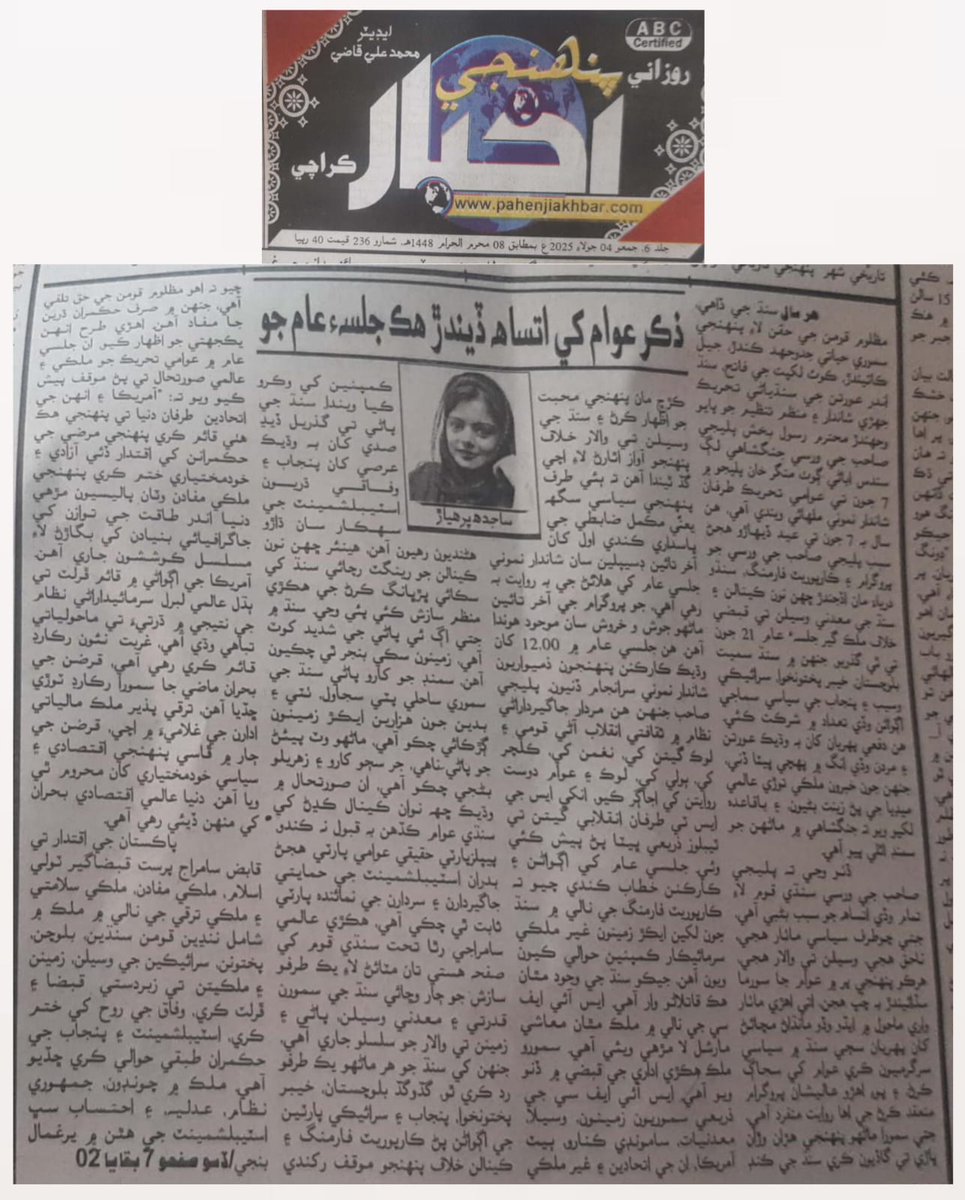 ABC
Certified
ايڊيٽر
محمد علي قاضي
روزاني
پنهنجي
اخبار
ڪراچي
www.pahenjiakhbar.com
جلد 6. جمعو 04 جولاءِ 2025ع بمطابق 08 محرم الحرام 1448هه. شمارو 236 قيمت 40 رپيا
ذڪر عوام کي اتساهه ڏيندڙ هڪ جلسهء عام جو
ساجده پرهياڙ
هر سال سنڌ جي ڏاهي،
مظلوم قومن جي حقن لاءِ پنهنجي
سموري حياتي جدوجهد ڪندڙ جيل
ڪاٽيندڙ، ڪوٽ لکپت جي فاتح، سنڌ
اندر عورتن جي سنڌياڻي تحريڪ
جهڙي شاندار ۽ منظم تنظيم جو پايو
وجهندڙ محترم رسول بخش پليجي
صاحب جي ورسي جنگشاهي لڳ
سندس اباڻي ڳوٺ منگر خان پليجو ۾
7 جون تي عوامي تحريڪ طرفان
شاندار نموني ملهائي ويندي آهي. هن
سال به 7 جون تي عيد ڏيهاڙو هجڻ
سبب پليجي صاحب جي ورسي جو
پروگرام ۽ ڪارپوريٽ فارمنگ، سنڌو
درياءَ مان لاڏجندڙ ڇهن نون ڪينالن ۽
سنڌ جي معدني وسيلن تي قبضي
خلاف ملڪ گير جلسهء عام 21 جون
تي ٿي گذريو. جنهن ۾ سنڌ سميت
بلوچستان، خيبر پختونخوا، سرائيڪي
وسيب ۽ پنجاب جي سياسي سماجي
اڳواڻن وڏي تعداد ۾ شرڪت ڪئي.
هن دفعي پهريان کان به وڌيڪ عورتن
۽ مردن وڏي انگ ۾ پهچي پيتا ڏني.
جنهن جون خبرون ملڪي توڙي عالمي
ميڊيا جي پڻ زينت بڻيون، ۽ باقاعده
لکيو ويو ته جنگشاهي ۾ ماڻهن جو
سمنڊ اٿلي پيو آهي.
ڏٺو وڃي ته پليجي
صاحب جي ورسي سنڌي قوم لاءِ
تمام وڏي اتساهه جو سبب بڻبي آهي.
جتي چوطرف سياسي ماٺار هجي.
ناحق هجي، وسيلن تي والار هجي.
هرڪو پنهنجي پر ۾ عوام جا سورما
سڏائيندڙ به چپ هجن. اتي اهڙي ماٺار
واري ماحول ۾ ايڏو وڏو مانڌاڻ مچائڻ
کان پهريان سڄي سنڌ ۾ سياسي
سرگرميون ڪري عوام کي سجاڳ
ڪرڻ ۽ پوءِ اهڙو عاليشان پروگرام
منعقد ڪرڻ جي اها روايت منفرد آهي.
جتي سمورا ماڻهو پنهنجي هڙان وڙان
ڀاڙي تي گاڏيون ڪري سنڌ جي ڪنڊ
ڪڙڇ مان پنهنجي محبت
جو اظهار ڪرڻ ۽ سنڌ جي
وسيلن تي والار خلاف
پنهنجو آواز اٿارڻ لاءِ اچي
گڏ ٿيندا آهن. ته ٻئي طرف
پنهنجي سياسي سگهه
يعني مڪمل ضابطي جي
پاسداري ڪندي اول کان
آخر تائين ڊسيپلين سان شاندار نموني
جلسي عام کي هلائڻ جي به روايت به
رهي آهي. جو پروگرام جي آخر تائين
ماڻهو جوش ۽ خروش سان موجود هوندا
آهن. هن جلسي عام ۾ 12.00 کان
وڌيڪ ڪارڪنن پنهنجون ذميواريون
شاندار نموني سرانجام ڏنيون. پليجي
صاحب جنهن هن مردار جاگيردارائي
نظام ۾ ثقافتي انقلاب آڻي قومي ۽
لوڪ گيتن کي، نغمن کي، ڪلچر
کي، ٻولي کي، لوڪ ۽ عوام دوست
روايتن کي اجاگر ڪيو. انکي ايس جي
ايس ٽي طرفان انقلابي گيتن تي
ٽيبلوز ذريعي پيٽا پڻ پيش ڪئي
وئي. جلسي عام کي اڳواڻن ۽
ڪارڪنن خطاب ڪندي چيو ته
ڪارپوريٽ فارمنگ جي نالي ۾ سنڌ
جون لکين ايڪڙ زمينون غير ملڪي
سرمائيڪار ڪمپنين حوالي ڪيون
ويون آهن. جيڪو سنڌ جي وجود مٿان
هڪ قاتلاڻو وار آهي. ايس آئي ايف
سي جي نالي ۾ ملڪ مٿان معاشي
مارشل لا مڙهي ويئي آهي. سمورو
ملڪ هڪڙي اداري جي قبضي ۾ ڏنو
ويو آهي. ايس آئي ايف سي جي
ذريعي سموريون زمينون، وسيلا،
معدنيات، سامونڊي ڪنارو، پيٽ
آمريڪا، ان جي اتحادين ۽ غير ملڪي
ڪمپنين کي وڪرو
ڪيا ويندا. سنڌ جي
پاڻي تي گذريل ڏيڍ
صدي کان به وڌيڪ
عرصي کان پنجاب ۽
وفاقي ڌريون
اسٽيبلشمينٽ جي
سهڪار سان ڌاڙو
هڻنديون رهيون آهن. هينئر ڇهن نون
ڪينالن جو رينگٽ رچائي سنڌ کي
سڪائي پڙپانگ ڪرڻ جي هڪڙي
منظم سازش ڪئي پئي وڃي. سنڌ ۾
جتي اڳ ئي پاڻي جي شديد کوٽ
آهي. زمينون سڪي بنجر ٿي چڪيون
آهن. سمنڊ جو کارو پاڻي سنڌ جي
سموري ساحلي پٽي سجاول، ٺٽي ۽
بدين جون هزارين ايڪڙ زمينون
ڳڙڪائي چڪو آهي. ماڻهو وٽ پيئڻ
جو پاڻي ناهي. جر سڄو کارو ۽ زهريلو
بڻجي چڪو آهي. ان صورتحال ۾
وڌيڪ ڇهه نوان ڪينال کڏڻ کي
سنڌي عوام ڪڏهن به قبول نه ڪندو.
پيپلزپارٽي حقيقي عوامي پارٽي هجڻ
بدران اسٽيبلشمينٽ جي حمايتي
جاگيردارن ۽ سردارن جي نمائنده پارٽي
ثابت ٿي چڪي آهي. هڪڙي عالمي
سامراجي رٿا تحت سنڌي قوم کي
صفحه هستي تان مٽائڻ لاءِ يڪ طرفو
سازش جو ڄار وڇائي سنڌ جي سمورن
قدرتي ۽ معدني وسيلن، پاڻي ۽
زمينن تي والار جو سلسلو جاري آهي.
جنهن کي سنڌ جو هر ماڻهو يڪ طرفو
رد ڪري ٿو. گڏوگڏ بلوچستان، خيبر
پختونخوا، پنجاب ۽ سرائيڪي پارٽين
جي اڳواڻن پڻ ڪارپوريٽ فارمنگ ۽
ڪينالن خلاف پنهنجو موقف رکندي
چيو ته اهو مظلوم قومن جي حق تلفي
آهي. جنهن ۾ صرف حڪمران ڌرين
جا مفاد آهن. اهڙي طرح انهن
يڪجهتي جو اظهار ڪيو. ان جلسي
عام ۾ عوامي تحريڪ جو ملڪي ۽
عالمي صورتحال تي پڻ موقف پيش
ڪيو ويو ته: "آمريڪا ۽ انهن جي
اتحادين طرفان دنيا تي پنهنجي هڪ
هٽي قائم ڪري پنهنجي مرضي جي
حڪمرانن کي اقتدار ڏئي آزادي ۽
خودمختياري ختم ڪري پنهنجي
ملڪي مفادن وٽان پاليسيون مڙهي
دنيا اندر طاقت جي توازن کي
جاگرافيائي بنيادن کي بگاڙڻ لاءِ
مسلسل ڪوششون جاري آهن.
آمريڪا جي اڳواڻي ۾ قائم ڦرلٽ تي
ٻڌل عالمي لبرل سرمائيدارائي نظام
جي نتيجي ۾ ڌرتيءَ تي ماحولياتي
تباهي وڌي آهي. غربت نئون رڪارڊ
قائم ڪري رهي آهي. قرضن جي
بحران ماضي جا سمورا رڪارڊ ٽوڙي
ڇڏيا آهن. ترقي پذير ملڪ مالياتي
ادارن جي غلاميءَ ۾ اچي، قرضن جي
ڄار ۾ ڦاسي پنهنجي اقتصادي ۽
سياسي خودمختياري کان محروم ٿي
ويا آهن. دنيا عالمي اقتصادي بحران
کي منهن ڏيئي رهي آهي.
پاڪستان جي اقتدار تي
قابض سامراج پرست قبضاگير ٽولي
اسلام، ملڪي مفادن، ملڪي سلامتي
۽ ملڪي ترقي جي نالي ۾ ملڪ ۾
شامل ننڍين قومن سنڌين، بلوچن،
پختونن، سرائيڪين جي وسيلن، زمينن
۽ ملڪيتن تي زبردستي قبضا ۽
ڦرلٽ ڪري، وفاق جي روح کي ختم
ڪري، اسٽيبلشمينٽ ۽ پنجاب جي
حڪمران طبقي حوالي ڪري ڇڏيو
آهي. ملڪ ۾ چونڊون، جمهوري
نظام، عدليه، ۽ احتساب سڀ
اسٽيبلشمينٽ جي هٿن ۾ يرغمال
بنجي/ڏسو صفحو 7 بقايا 02